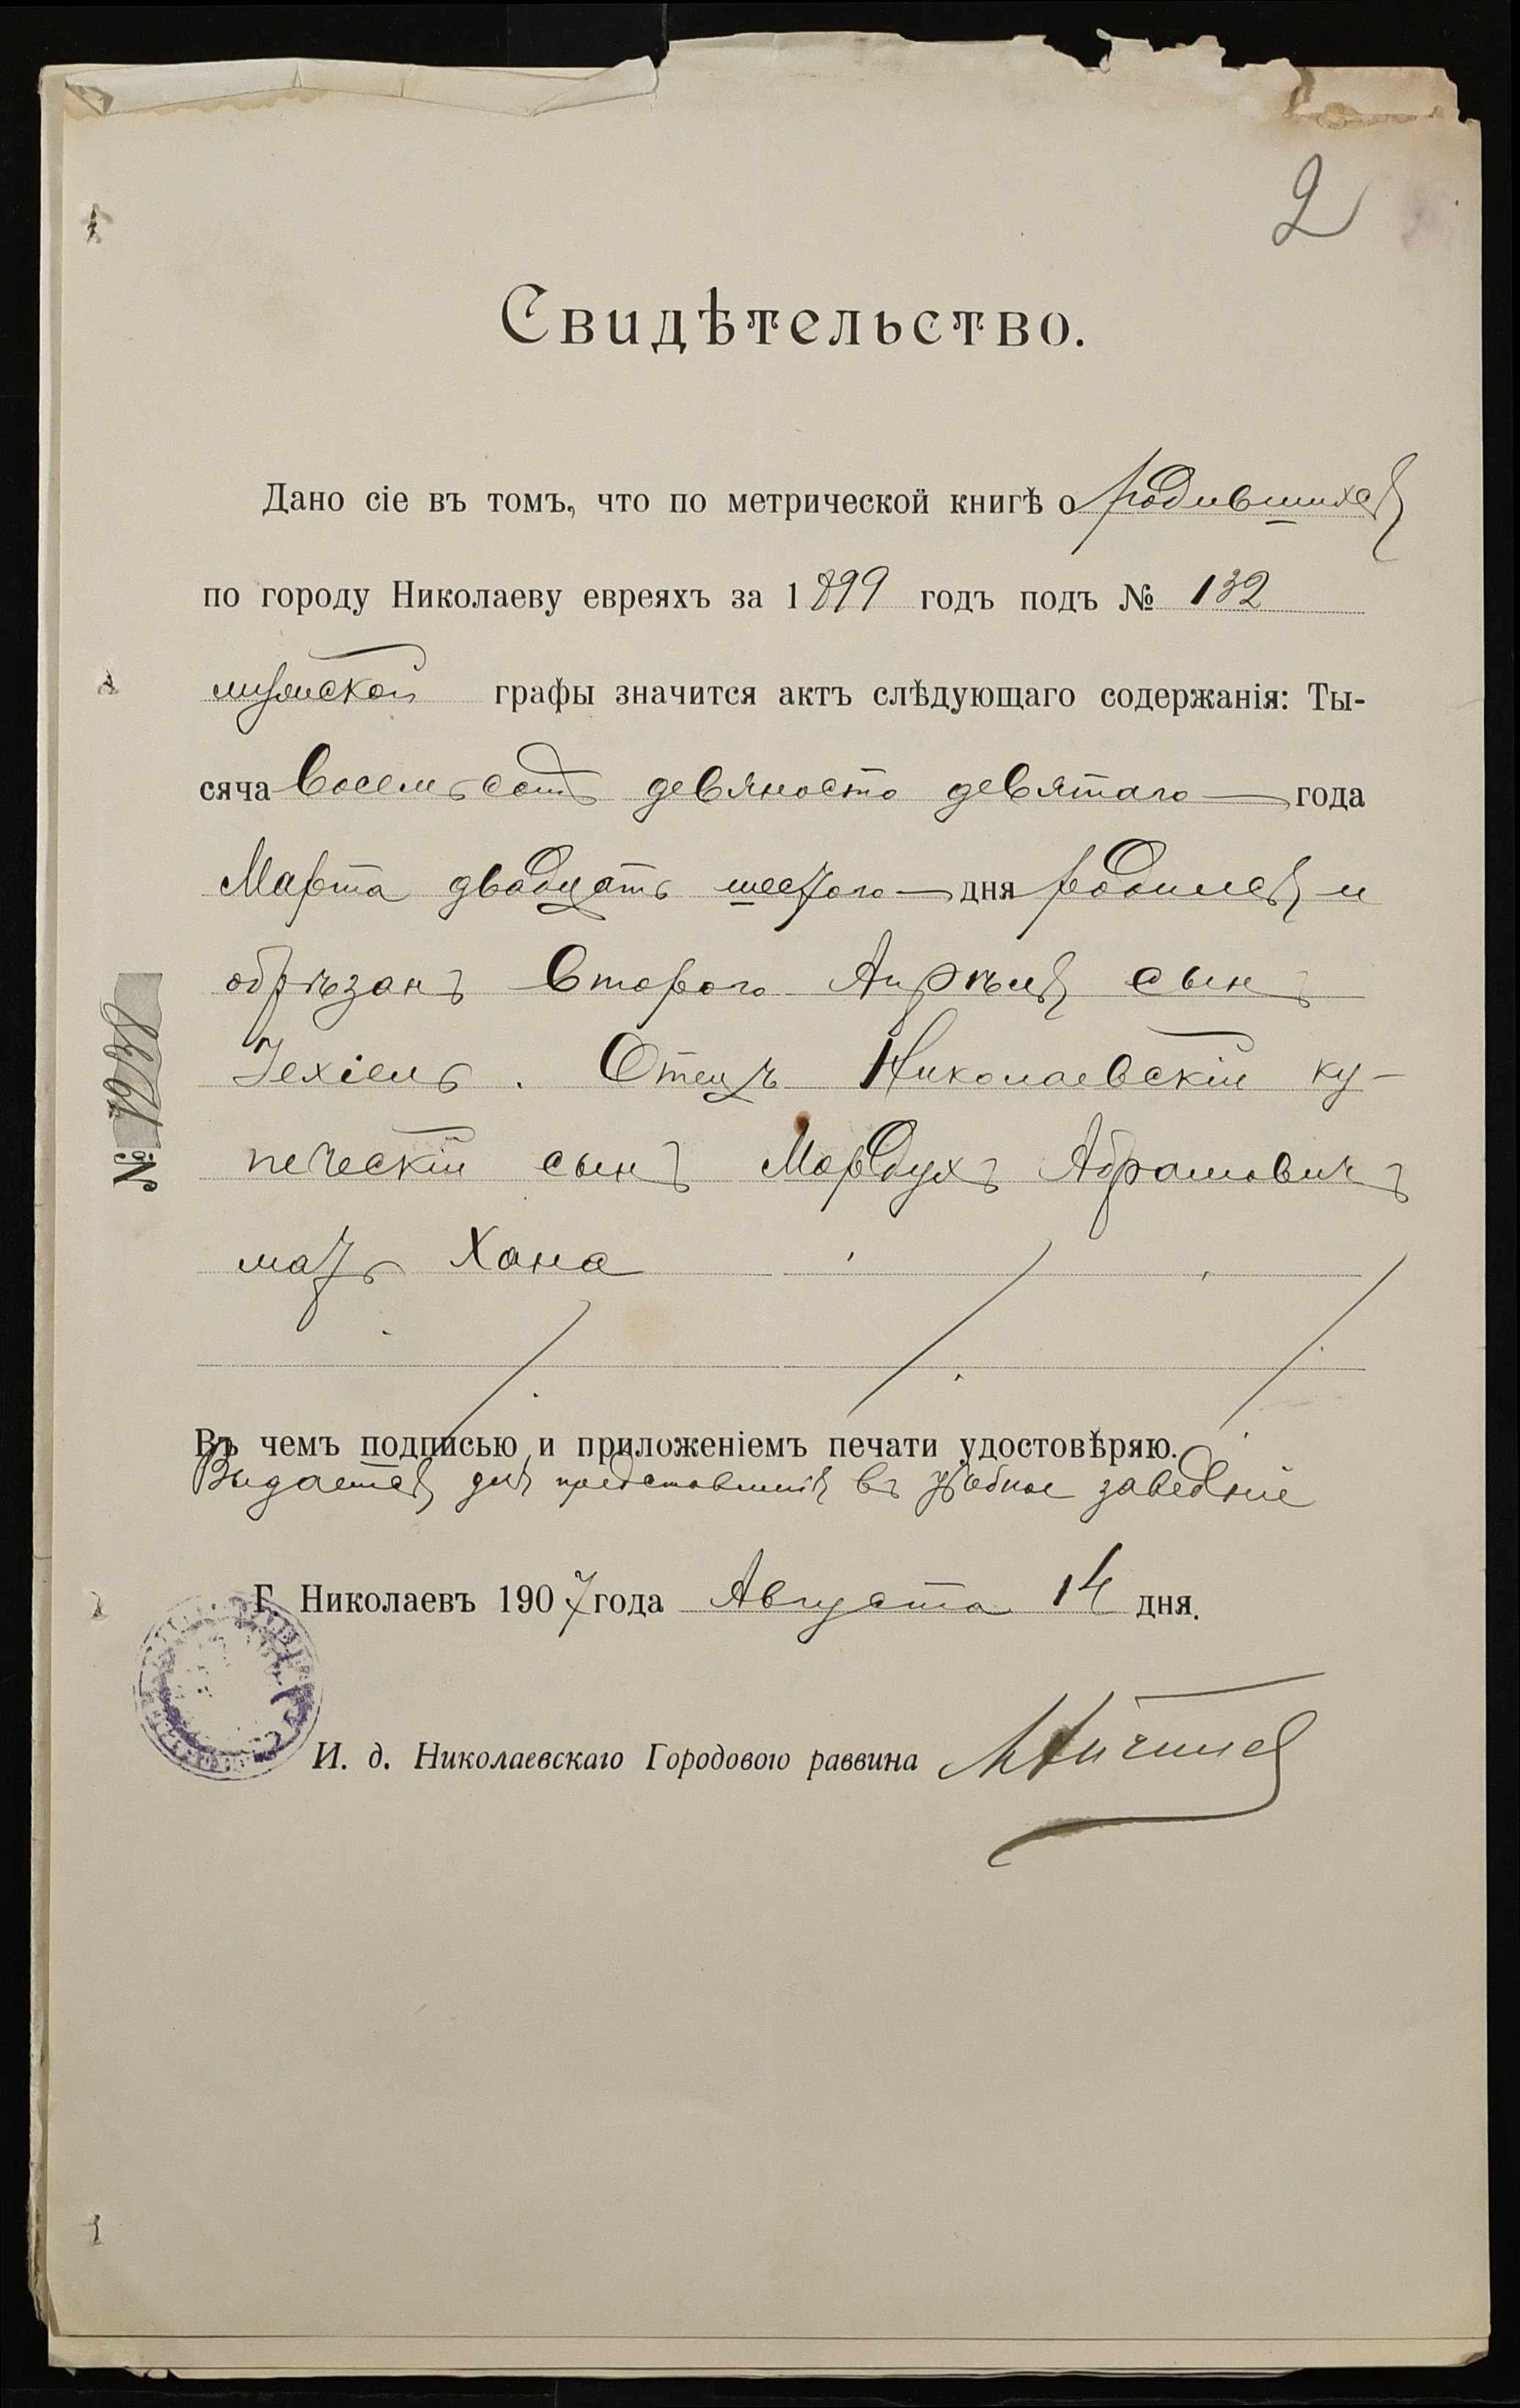 2
Свидѣтельство.
Дано сіе въ томъ, что по метрической книгѣ о родившихся
по городу Николаеву евреяхъ за 1899 годъ подъ № 132
мужской графы значится актъ слѣдующаго содержанія: Ты-
сяча восемьсотъ девяносто девятаго — года
Марта двадцать шестого — дня родился и
обрѣзанъ второго Апрѣля сынъ
Іехіель. Отецъ Николаевскій ку-
печескій сынъ Мордухъ Абрамовичъ
мать Хана
Въ чемъ подписью и приложеніемъ печати удостовѣряю.
Выдается для представленія въ учебное заведеніе
Г. Николаевъ 1907 года Августа 14 дня.
И. д. Николаевскаго Городового раввина
№